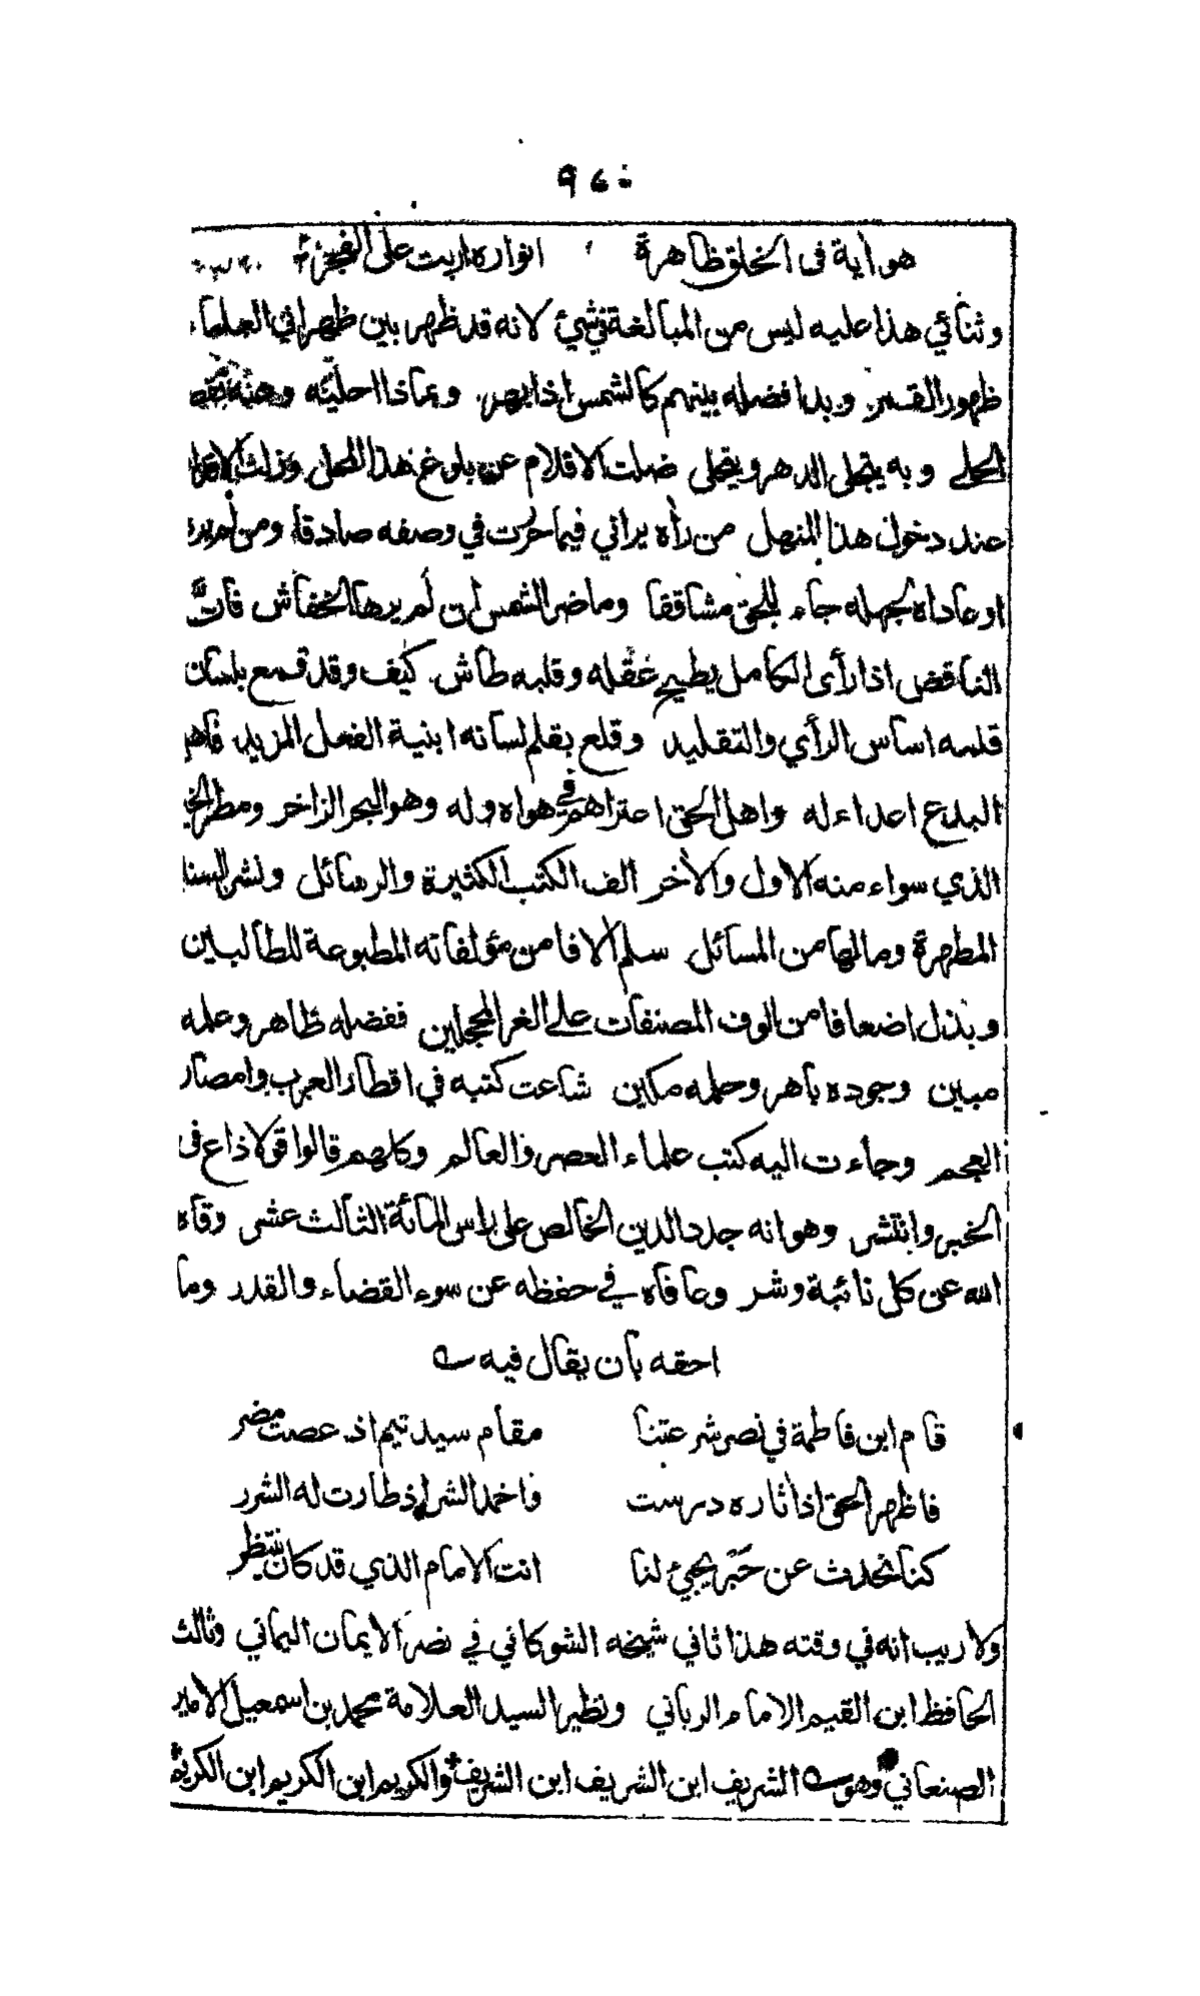 هو اٰية فى الخلق ظاهرة انواره اربت على الفجر
وثنائي هذا عليه ليس من المبالغة في شيئ لانه قد ظهر بين ظهراني العلماء
ظهور القمر وبدا فضله بينهم كالشمس اذا بهر وبماذا احليّه وعنه
الحلي وبه يتجلى الدهر ويتحلى ضلت الاقلام عن بلوغ هذا المحل وزلت الاقدام
عند دخول هذا المنهل من رأٰه يراني فيما حررت في وصفه صادقا ومن لم يره
او عاداه لجهله جاء للحق مشاققا وما ضر الشمس ان لم يرها الخفاش فان
الناقص اذا رأى الكامل يطيح عقله وقلبه طاش كيف وقد قمع بلسان
قلمه اساس الرأي والتقليد وقلع بقلم لسانه ابنية الفعل المزيد فاهل
البدع اعداء له واهل الحق اعتراهم في هواه وله وهو البحر الزاخر ومطر الخير
الذي سواء منه الاول والاٰخر الف الكتب الكثيرة والرسائل ونشر السنة
المطهرة ومالها من المسائل سلم الافا من مؤلفاته المطبوعة للطالبين
وبذل اضعافا من الوف المصنفات على الغر المحجلين ففضله ظاهر وعلمه
مبين وجوده باهر وحلمه مكين شاعت كتبه في اقطار العرب وامصار
العجم وجاءت اليه كتب علماء العصر والعالم وكلهم قالوا قولا ذاع فى
الخبر وانتشر وهو انه جدد الدين الخالص على راس المائة الثالث عشر وقاه
الله عن كل نائبة وشر وعافاه في حفظه عن سوء القضاء والقدر وما
احقه بان يقال فيه
قام ابن فاطمة في نصر شرعتنا مقام سيد تيم اذ عصت مضر
فاظهر الحق اذ اثاره درست فاخمد الشر اذ طارت له الشرر
كنا نحدث عن حَبَر يجيئ لنا انت الامام الذي قد كان ننتظر
ولا ريب انه في وقته هذا ثاني شيخه الشوكاني في نصر الايمان اليماني وثالث
الحافظ ابن القيم الامام الرباني ونظير السيد العلامة محمد بن اسمعيل الامير
الصنعاني وهو الشريف ابن الشريف ابن الشريف والكريم ابن الكريم ابن الكريم